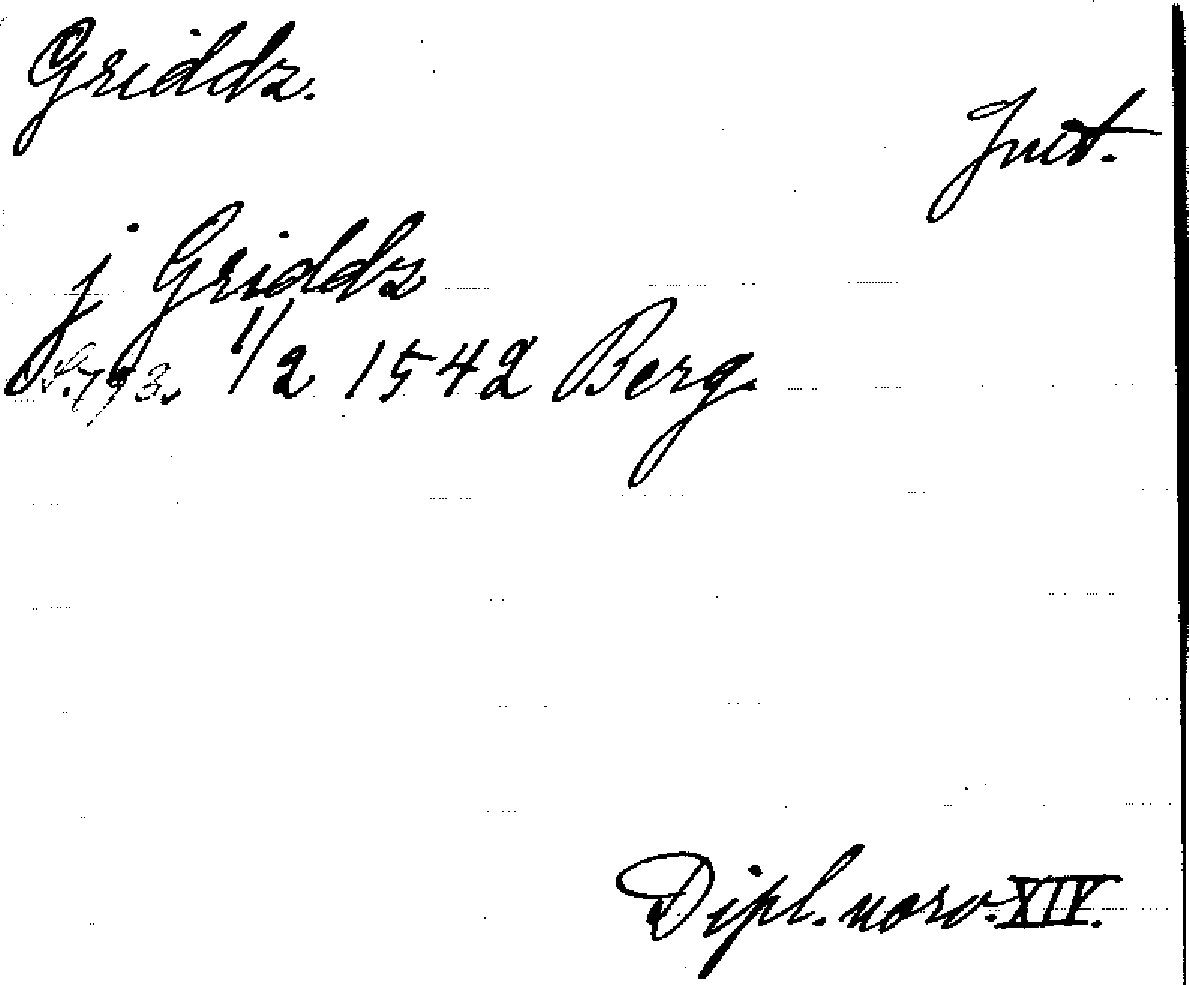 Griddz.
Jut.
j Griddz
S. 793. 1/2 1542 Berg.
Dipl. norv. XIV.